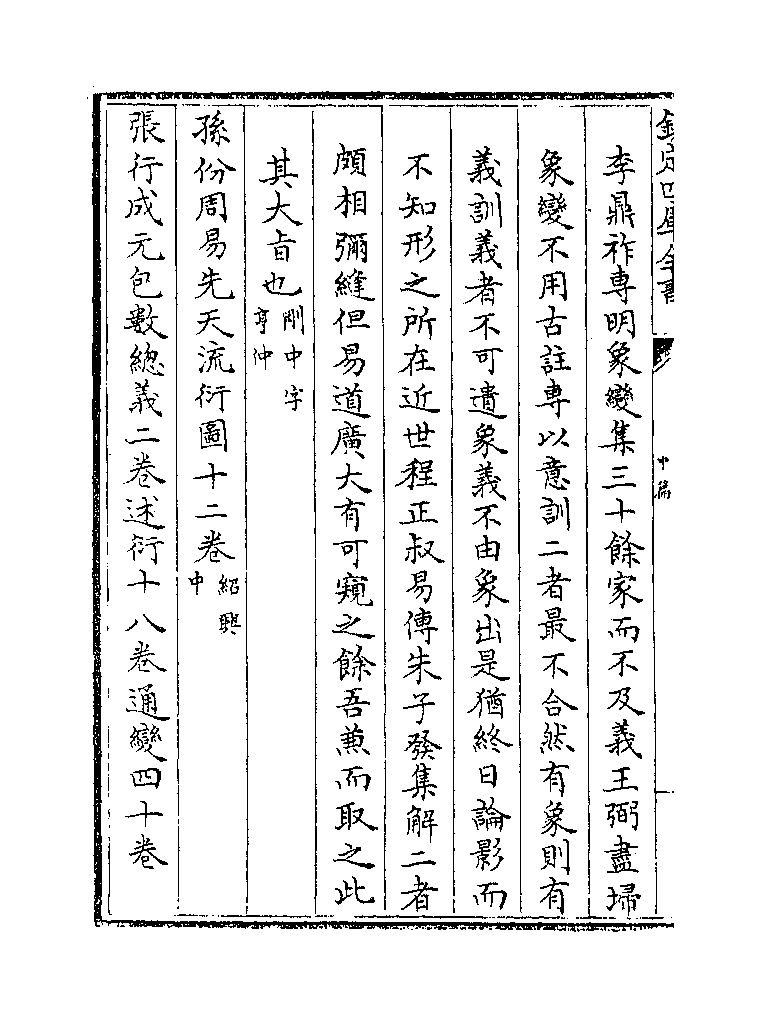 欽定四庫全書
中篇
李鼎祚專明象變集三十餘家而不及義王弼盡埽
象變不用古註專以意訓二者最不合然有象則有
義訓義者不可遺象義不由象出是猶終日論影而
不知形之所在近世程正叔易傳朱子發集解二者
頗相彌縫但易道廣大有可窺之餘吾兼而取之此
其大旨也剛中字
亨仲
孫份周易先天流衍圖十二卷紹興
中
張行成元包數總義二卷述衍十八卷通變四十卷